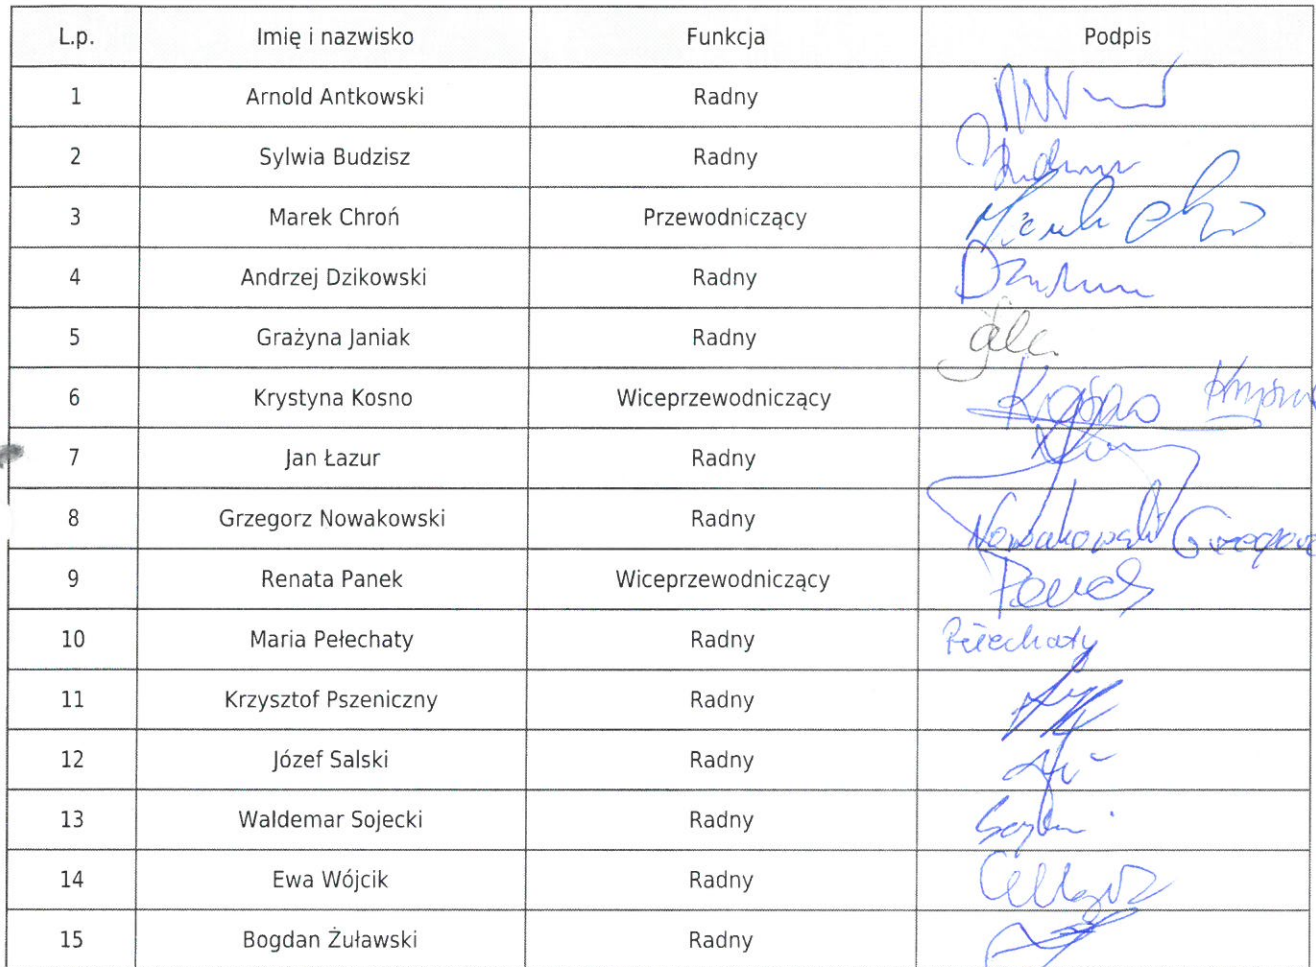 L.p. Imię i nazwisko Funkcja Podpis
1 Arnold Antkowski Radny
2 Sylwia Budzisz Radny
3 Marek Chroń Przewodniczący
4 Andrzej Dzikowski Radny
5 Grażyna Janiak Radny
6 Krystyna Kosno Wiceprzewodniczący Kosno
7 Jan Łazur Radny
8 Grzegorz Nowakowski Radny Nowakowski
9 Renata Panek Wiceprzewodniczący Panek
10 Maria Pełechaty Radny Pełechaty
11 Krzysztof Pszeniczny Radny
12 Józef Salski Radny
13 Waldemar Sojecki Radny
14 Ewa Wójcik Radny
15 Bogdan Żuławski Radny